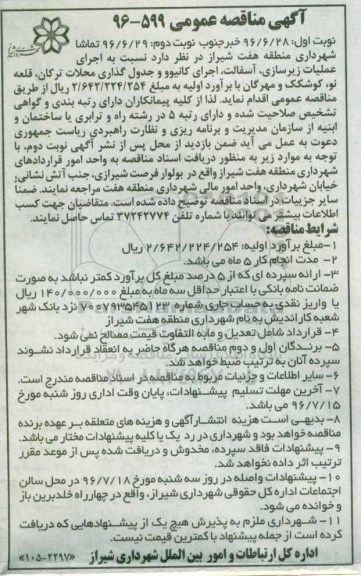 آگهی مناقصه عمومی ۵۹۹-۹۶
نوبت اول: ۹۶/۶/۲۸ خبرجنوب نوبت دوم: ۹۶/۶/۲۹ تماشا
شهرداری منطقه هفت شیراز در نظر دارد نسبت به اجرای
عملیات زیرسازی، آسفالت، اجرای کانیوو و جدول گذاری محلات ترکان، قلعه
نو، کوشکک و مهرگان با برآورد اولیه به مبلغ ۲/۶۴۲/۲۲۴/۲۵۴ ریال از طریق
مناقصه عمومی اقدام نماید. لذا از کلیه پیمانکاران دارای رتبه بندی و گواهی
تشخیص صلاحیت شده و دارای رتبه ۵ در رشته راه و ترابری یا ساختمان و
ابنیه از سازمان مدیریت و برنامه ریزی و نظارت راهبردی ریاست جمهوری
دعوت به عمل می آید ضمن بازدید از محل پس از نشر آگهی نوبت دوم، با
توجه به موارد زیر به منظور دریافت اسناد مناقصه به واحد امور قراردادهای
شهرداری منطقه هفت شیراز واقع در بولوار فرصت شیرازی، جنب آتش نشانی،
خیابان شهرداری، واحد امور مالی شهرداری منطقه هفت مراجعه نمایند. ضمنا
سایر جزییات در اسناد مناقصه توضیح داده شده است. متقاضیان جهت کسب
اطلاعات بیشتر می توانند با شماره تلفن ۳۷۲۴۲۷۷۴ تماس حاصل نمایند.
شرایط مناقصه:
۱-مبلغ برآورد اولیه: ۲/۶۴۲/۲۲۴/۲۵۴ ریال
۲- مدت انجام کار ۵ ماه می باشد.
۳- ارائه سپرده ای که از ۵ درصد مبلغ کل برآورد کمتر نباشد به صورت
ضمانت نامه بانکی با اعتبار حداقل سه ماه به مبلغ ۱۴۰/۰۰۰/۰۰۰ ریال
یا واریز نقدی به حساب جاری شماره ۷۰-۷۹۳۵۴۵۱۲۳ نزد بانک شهر
شعبه کاراندیش به نام شهرداری منطقه هفت شیراز
۴- قرارداد شامل تعدیل و مابه التفاوت قیمت مصالح نمی شود.
۵- برندگان اول و دوم مناقصه هرگاه حاضر به انعقاد قرارداد نشوند
سپرده آنان به ترتیب ضبط خواهد شد.
۶- سایر اطلاعات و جزئیات مربوط به مناقصه در اسناد مناقصه مندرج است.
۷- آخرین مهلت تسلیم پیشنهادات، پایان وقت اداری روز شنبه مورخ
۹۶/۷/۱۵ می باشد.
۸- بدیهی است هزینه انتشار آگهی و هزینه های متعلقه بر عهده برنده
مناقصه خواهد بود و شهرداری در رد یک یا کلیه پیشنهادات مختار می باشد.
۹- پیشنهادات فاقد سپرده، مخدوش و دریافت شده پس از موعد مقرر
ترتیب اثر داده نخواهد شد.
۱۰- پیشنهادات واصله در روز سه شنبه مورخ ۹۶/۷/۱۸ در محل سالن
اجتماعات اداره کل حقوقی شهرداری شیراز، واقع در چهارراه خلدبرین باز
و خوانده می شود.
۱۱- شهرداری ملزم به پذیرش هیچ یک از پیشنهادهایی که دریافت
کرده است از جمله پیشنهاد با کمترین قیمت نیست.
اداره کل ارتباطات و امور بین الملل شهرداری شیراز «۱۰۵-۲۲۹۷»